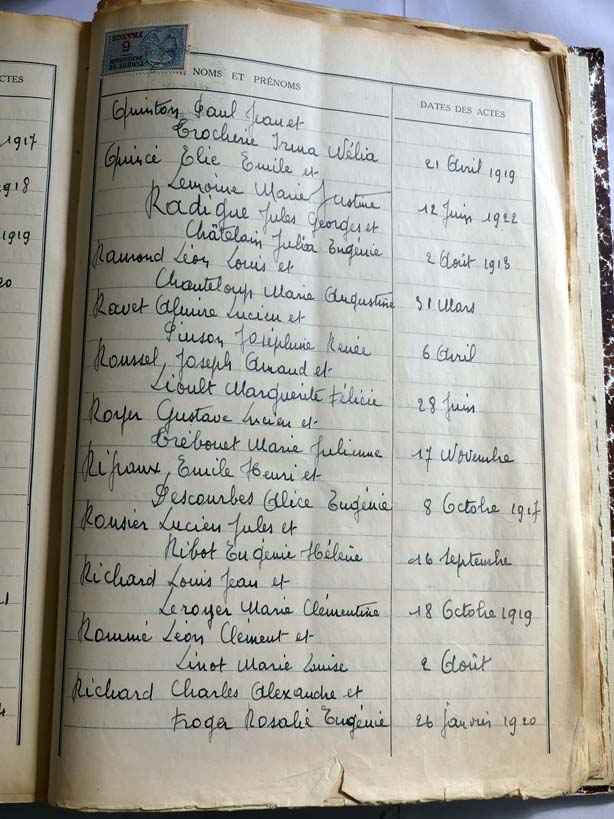 CTES
1917
1918
1919
20
4
TIMBRE DE
DIMENSION
6
FRANCS
NOMS ET PRÉNOMS
DATES DES ACTES
Quinton Paul Jean et
Trocherie Irma Nélia
21 Avril 1919
Quincé Elie Emile et
Lemoine Marie Justine
12 Juin 1922
Radigue Jules Georges et
Châtelain Julia Eugénie
2 Août 1913
Ramond Léon Louis et
Chanteloup Marie Augustine
31 Mars
Ravet Almire Lucien et
Pinson Joséphine Renée
6 Avril
Roussel Joseph Amand et
Lioult Marguerite Félicie
28 Juin
Royer Gustave Lucien et
Trébouet Marie Julienne
17 Novembre
Rifraux Emile Henri et
Descourbes Alice Eugénie
8 Octobre 1917
Ronsier Lucien Jules et
Ribot Eugénie Hélène
16 Septembre
Richard Louis Jean et
Leroyer Marie Clémentine
18 Octobre 1919
Rommé Léon Clément et
Linot Marie Louise
2 Août
Richard Charles Alexandre et
Froger Rosalie Eugénie
26 janvier 1920